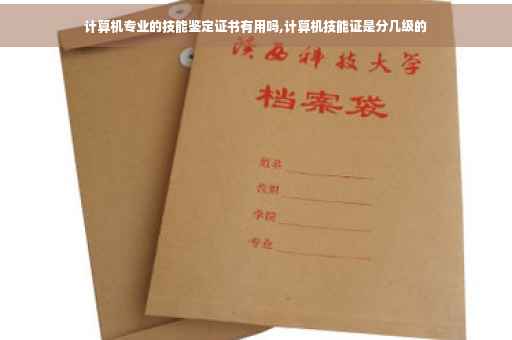 计算机专业的技能鉴定证书有用吗,计算机技能证是分几级的
陕西科技大学
档案袋
学院
专业